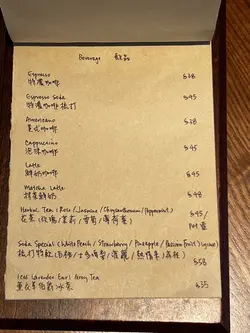 Beverage 飲品
Espresso $38
特濃咖啡
Espresso Soda $45
特濃咖啡梳打
Americano $38
美式咖啡
Cappuccino $45
泡沫咖啡
Latte $45
鮮奶咖啡
Matcha Latte $48
抹茶鮮奶
Herbal Tea (Rose / Jasmine / Chrysanthemum / Peppermint) $45/
花茶 (玫瑰/茉莉/香菊/薄荷葉)
Soda Special (White Peach / Strawberry / Pineapple / Passion Fruit
梳打特飲 (白桃/士多啤梨/菠蘿/熱情果 $58
Iced Lavender Earl Grey Tea
薰衣草伯爵冰茶 $35